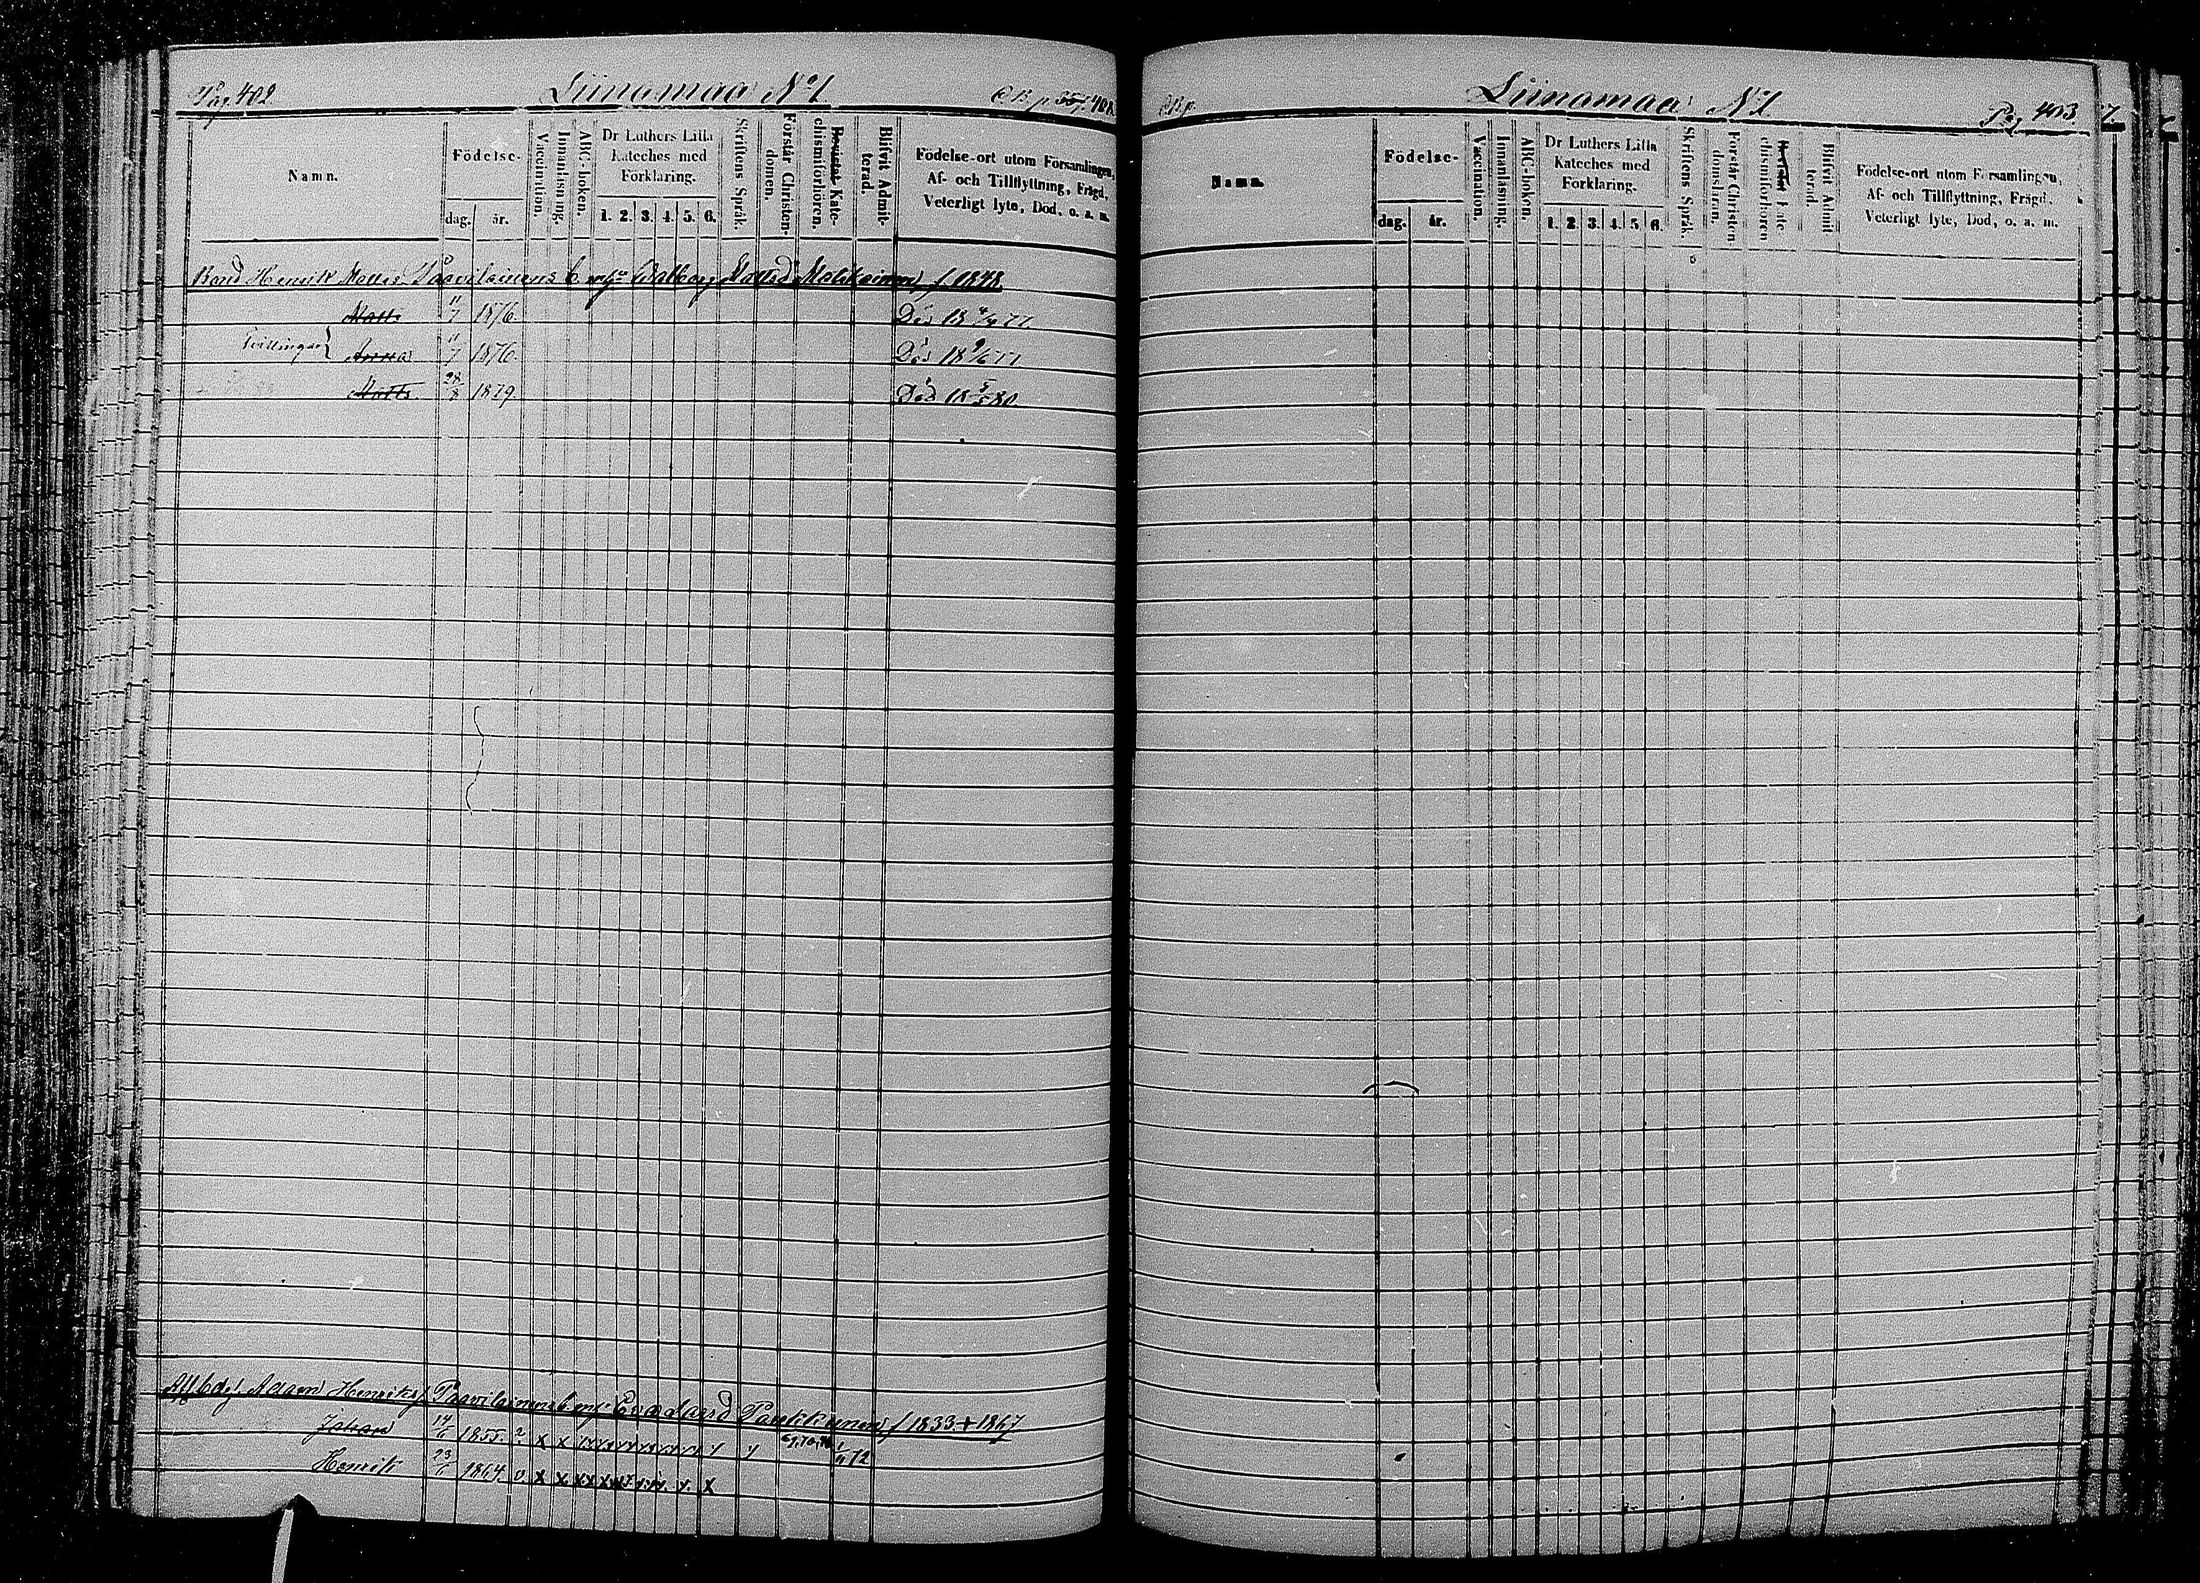 Pag. 402 Liinamaa No 1
Namn. Födelse- dag. år. Vaccination. Innanläsning. ABC-boken. Dr Luthers Lilla Kateches med Förklaring. 1. 2. 3. 4. 5. 6. Skriftens Språk. Förstår Christendomen. Kate-chismiförhören. Blifvit Admit-terad. Födelse-ort utom Församlingen, Af- och Tillflyttning, Frägd, Veterligt lyte, Död, o. a. m.
Bond Henrik Paavilainens Walborg Mattsd f. 1848
Matts 11/7 1876. Död 18 77.
Tvillingar} Anna 11/7 1876. Död 18 9/6 77
Matts 28/8 1879. Död 18 80.
Adam Henriks Paavilainens Eva Larsd f 1833 + 1867
Johan 14/6 1855. x x 72
Henrik 23/6 1864. v. x x x x x x
Liinamaa No 1. Pag 403
Namn. Födelse- dag. år. Vaccination. Innanläsning. ABC-bokon. Dr Luthers Lilla Kateches med Förklaring. 1. 2. 3. 4. 5. 6. Skriftens Språk. Förstår Christendomsläran. Kate chismiförhören Blifvit Admit terad. Födelse-ort utom Församlingen, Af- och Tillflyttning, Frägd, Veterligt lyte, Död, o. a. m.